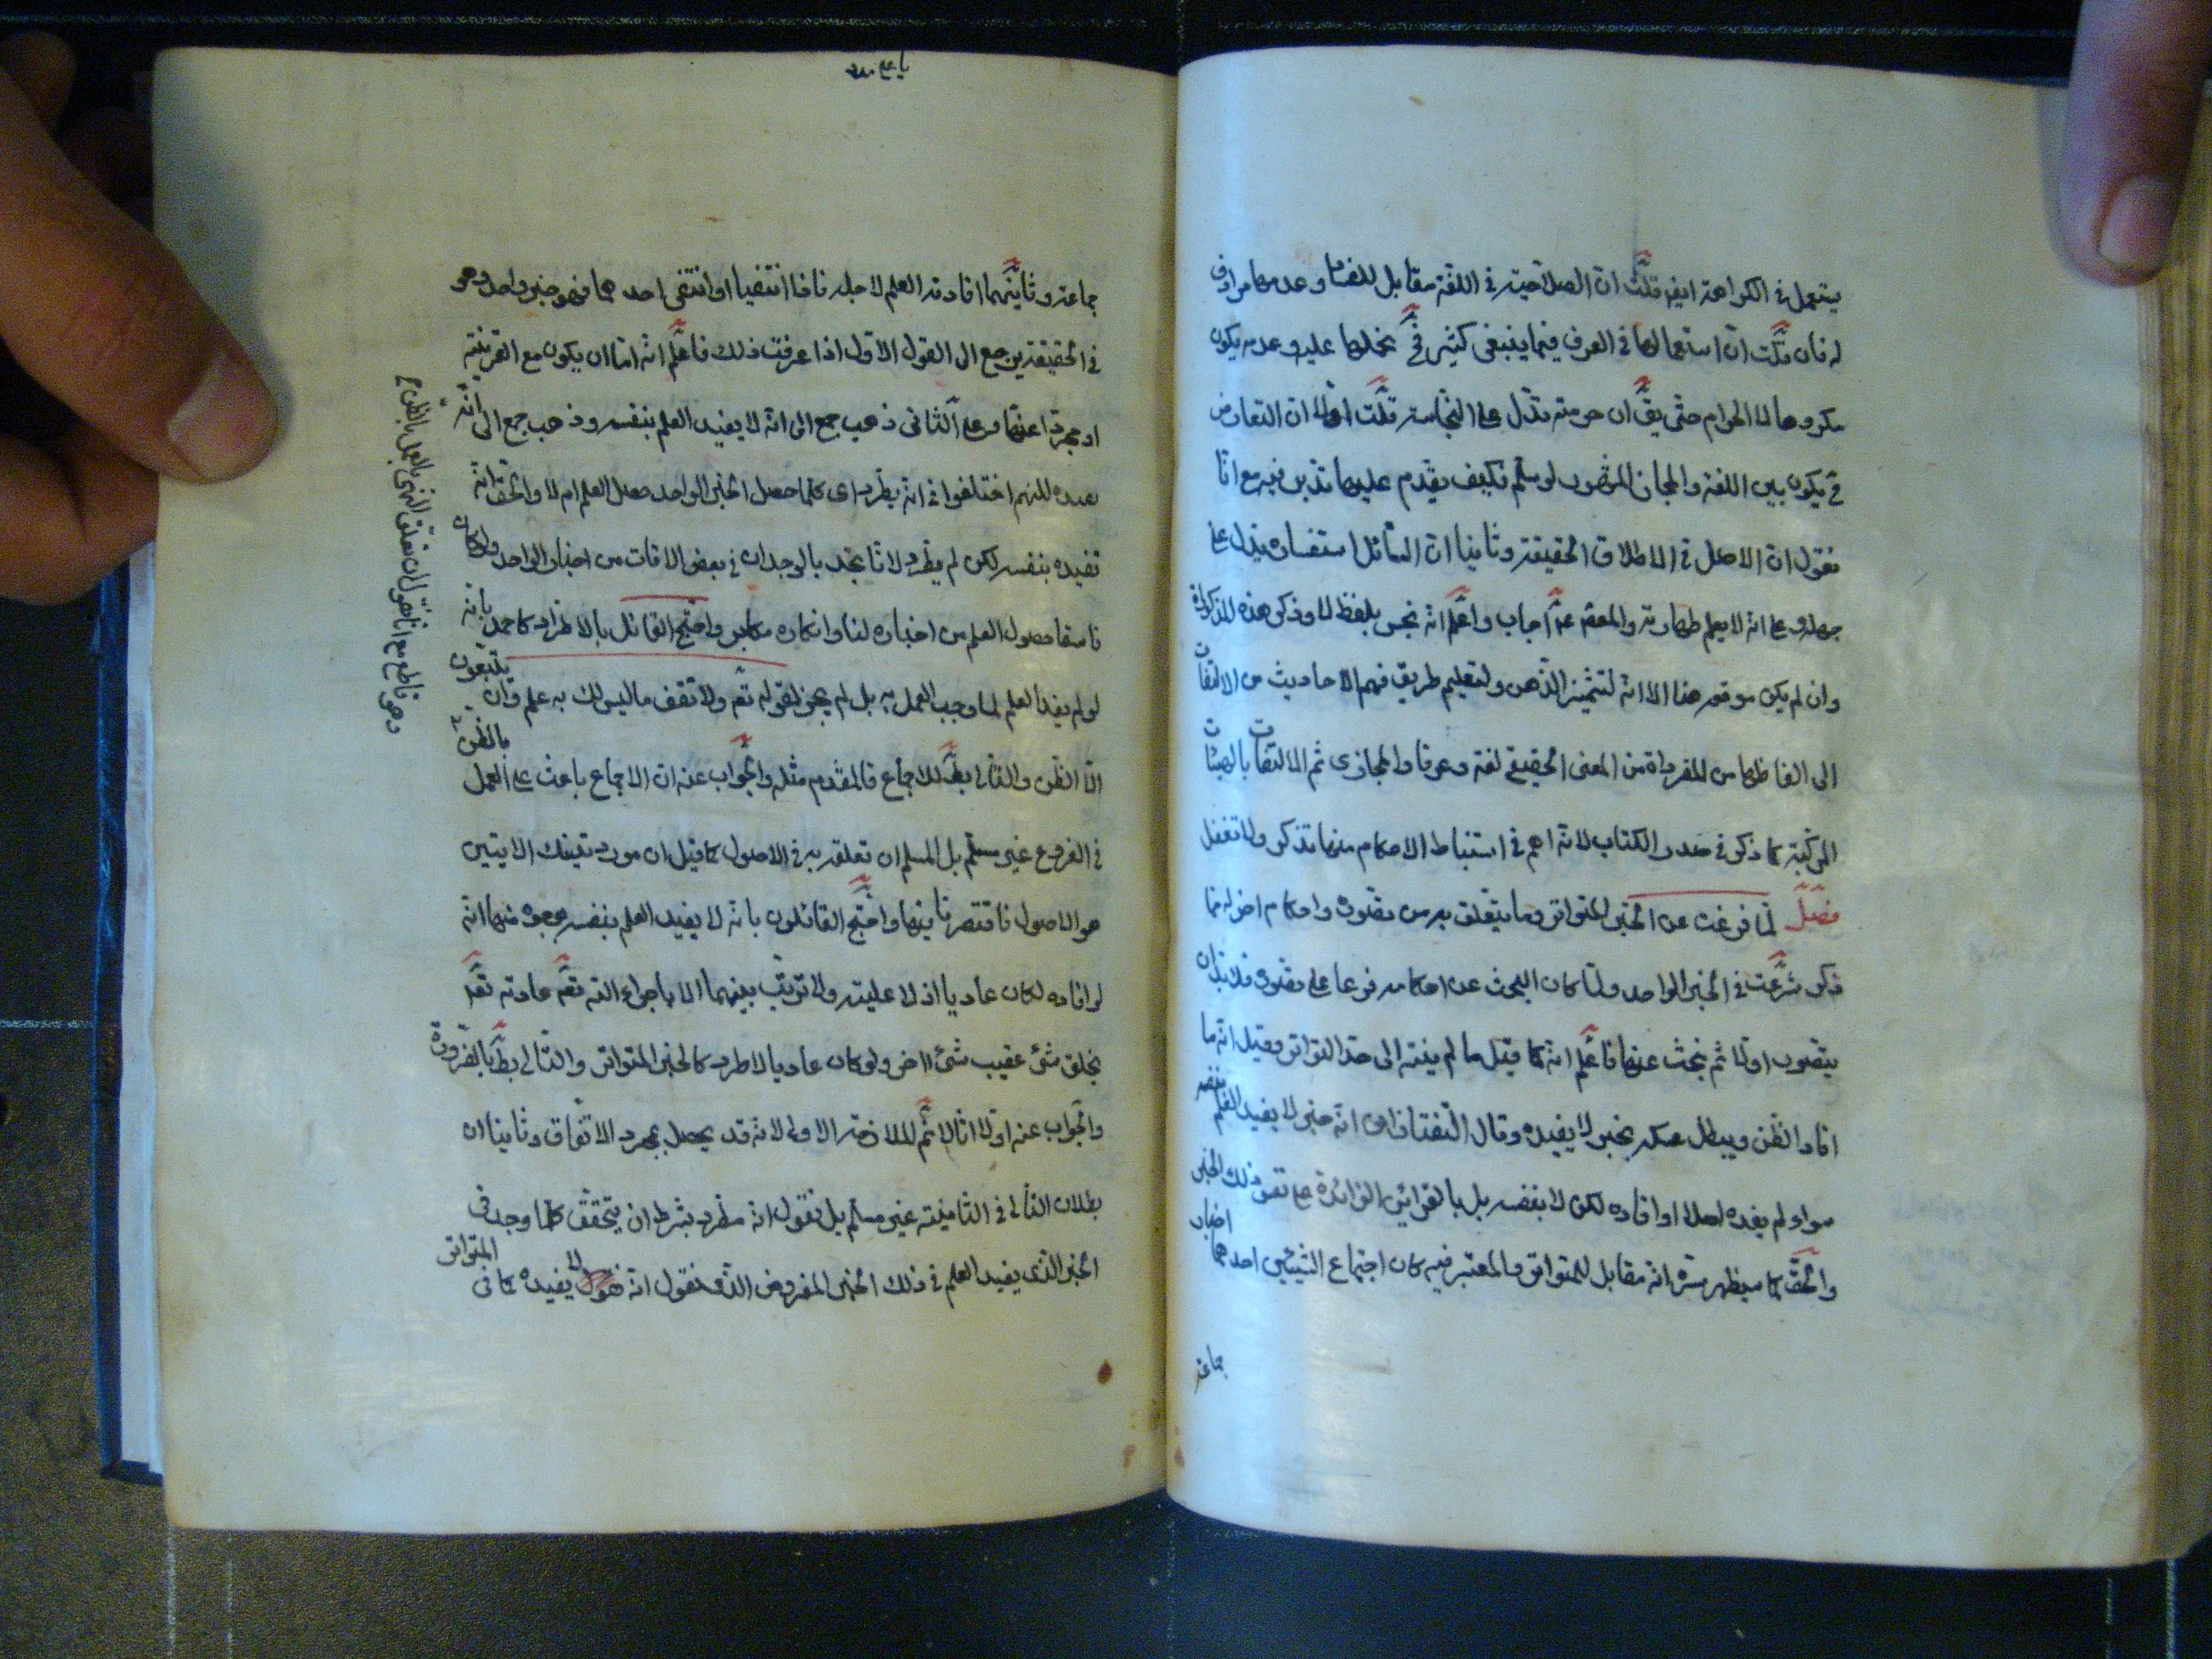 يتعمل في الكراهة ايض قلت ان الصلاحية في اللغة مقابل للفسا وعدمها مرادف
له فان قلت ان استعمالها في العرف فيما ينبغي كثير فح نحملها عليه وعدمه يكون
مكروها لا الحرام حتى يق ان حرمته تدل على النجاسة قلت اولا ان التعارض
ح يكون بين اللغة والمجاز المشهور لو سلم فكيف يقدم عليها تدبر فيه مع انا
نقول ان الاصل في الاطلاق الحقيقة وثانيا ان السائل استفساره يدل على
جهله وعلى انه لا يعلم طهارته والمعصوم ع اجاب واعلم انه نجس بلفظ لا وذكر هذه المذكورات
وان لم يكن موقعه هنا الا انه لتشحيذ الذهن ولتعليم طريق فهم الاحاديث من الالتفات
الى الفاظها من المفردات من المعنى الحقيقي لغة وعرفا والمجازي ثم الالتفات بالهيئات
المركبة كما ذكر في صدر الكتاب لانه اهم في استنباط الاحكام منها تذكر ولا تغفل
فصل لما فرغت عن الخبر المتواتر وما يتعلق به من تصوره واحكام اخر له مما
ذكر شرعت في الخبر الواحد ولما كان البحث عن احكامه فرعا على تصوره فلا بد ان
يتصور اولا ثم نبحث عنها فاعلم انه كما قيل ما لم ينته الى حد التواتر وقيل انه ما
افاد الظن ويبطل عكسه بخبر لا يفيده وقال التفتازاني انه خبر لا يفيد العلم بنفسه
سواء لم يفده اصلا او افاده لكن لا بنفسه بل بالقرائن الزائدة على نفس ذلك الخبر
والحق كما سيظهر سره انه مقابل للمتواتر والمعتبر فيه كان اجتماع الشيئين احدهما اخبار
جماعة
جماعة وثانيهما افادته العلم لاجله فاذا انتفيا او انتفى احدهما فهو خبر واحد وهو
في الحقيقة يرجع الى القول الاول اذا عرفت ذلك فاعلم انه اما ان يكون مع القرينة
او مجردا عنها وعلى الثاني ذهب جمع الى انه لا يفيد العلم بنفسه وذهب جمع الى انه
يفيده لكنهم اختلفوا في انه يطرد اى كلما حصل الخبر الواحد حصل العلم ام لا والحق انه
تفيده بنفسه لكن لم يطرد لانا نجد بالوجدان في بعض الاوقات من اخبار الواحد ولو كان
فاسقا حصول العلم من اخباره لنا وانكاره مكابرة واحتج القائل بالاطراد كاحمد بانه
لو لم يفد العلم لما وجب العمل به بل لم يجز لقوله تع ولا تقف ما ليس لك به علم وان يتبعون
الا الظن والتالي بط للاجماع فالمقدم مثله والجواب عنه ان الاجماع باعث على العمل بالظن
في الفروع غير مسلم بل المسلم ان تعلقه به في الاصول كما قيل ان مورد تينك الايتين
هو الاصول فاقتصر فيهما واحتج القائلون بانه لا يفيد العلم بنفسه بوجوه منها انه
لو افاده لكان عاديا اذ لا علية ولا ترتب بينهما الا باجراء الله تع عادته تع
بخلق شئ عقيب شئ اخر ولو كان عاديا لاطرد كالخبر المتواتر والتالي بط بالضرورة
والجواب عنه اولا انا لا نثم الملازمة الاولى لانه قد يحصل بمجرد الاتفاق وثانيا ان
بطلان التالي في الثانية غير مسلم بل نقول انه مطرد بشرط ان يتحقق كلما وجد في
الخبر الذي يفيد العلم في ذلك الخبر المفروض الذي نقول انه يفيده كما في المتواتر
وهو قاطع مع انا نقول ان تعلق النهى بالعمل بالظن